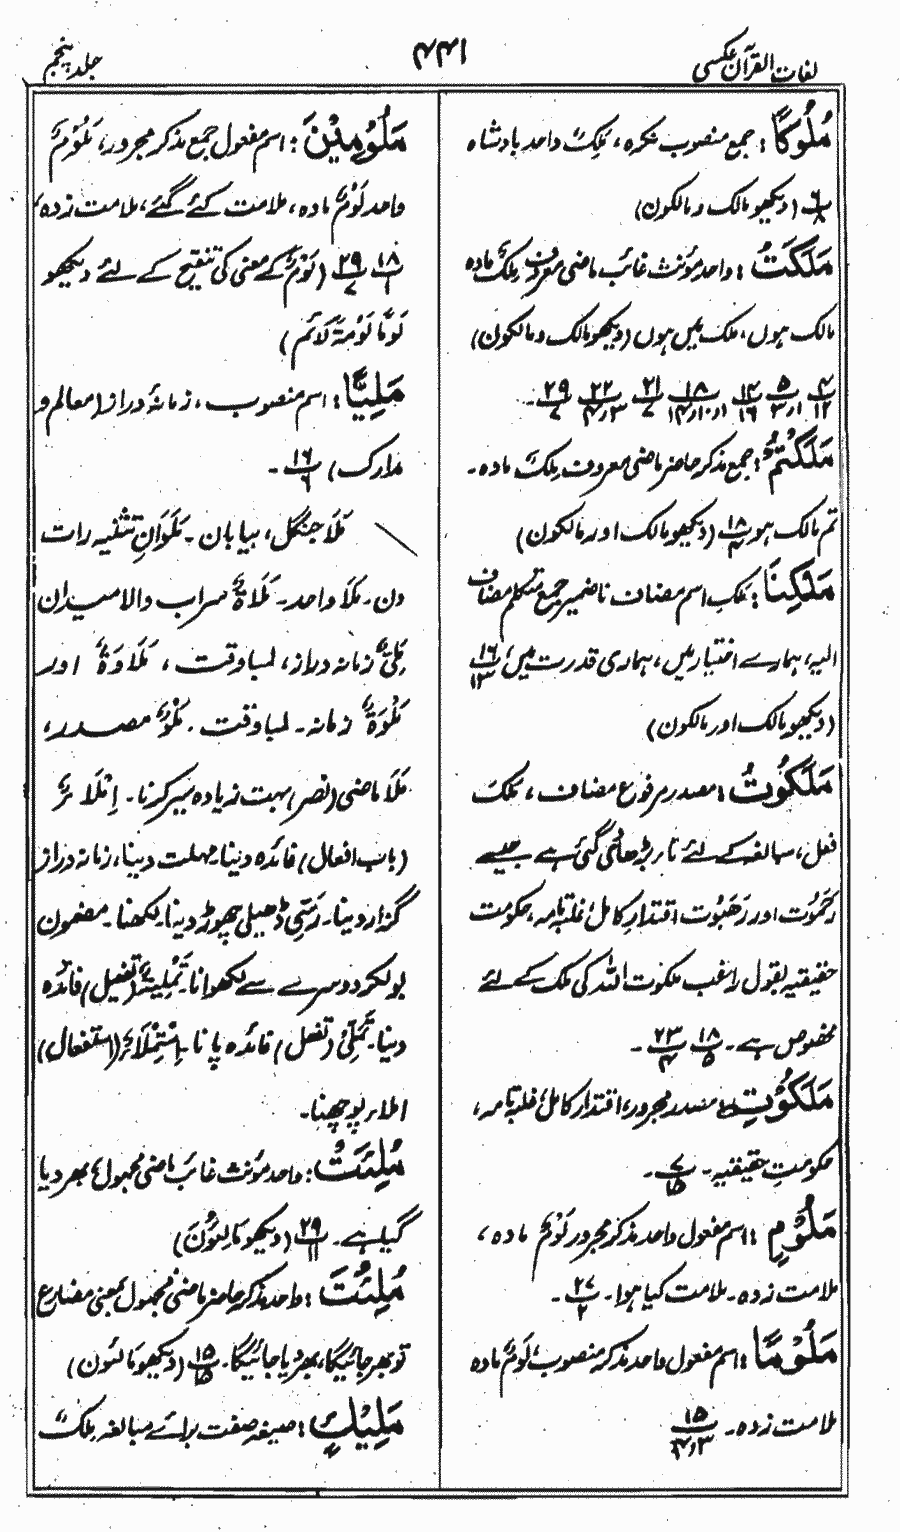 لغات القرآن عکسی
۴۴۱
جلد پنجم
مُلُوْکًا: جمع منصوب نکرہ، مَلِکٌ واحد بادشاہ
۶/۸ (دیکھو مالک و مالکون)
مَلَکَتْ: واحد مؤنث غائب ماضی معروف مِلْکٌ مادہ
مالک ہوں، ملک میں ہوں (دیکھو مالک و مالکون)
۴/۱۲ ۵/۱و۳ ۱۴/۱۶ ۱۸/۱و۱۰و۱۴ ۲۱/۷ ۲۲/۳و۴ ۲۹/۷۔
مَلَکْتُمْ: جمع مذکر حاضر ماضی معروف مِلْکٌ مادہ۔
تم مالک ہو ۱۸/۴ (دیکھو مالک اور مالکون)
مَلْکِنَا: مَلْکِ اسم مضاف نا ضمیر جمع متکلم مضاف
الیہ، ہمارے اختیار میں، ہماری قدرت میں، ۱۶/۱۳
(دیکھو مالک اور مالکون)
مَلَکُوْتُ: مصدر مرفوع مضاف، مَلَکَ
فعل، مبالغہ کے لئے تا بڑھائی گئی ہے جیسے
رَحَمُوْت اور رَهَبُوْت اقتدارِ کامل، غلبۂ تامہ، حکومت
حقیقیہ بقول راغب ملکوت اللہ کی ملک کے لئے
مخصوص ہے۔ ۱۸/۵ ۲۳/۴۔
مَلَکُوْتِ: مصدر مجرور، اقتدار کامل، غلبۂ تامہ،
حکومتِ حقیقیہ۔ ۷/۱۵۔
مَلُوْمٍ: اسم مفعول واحد مذکر مجرور لَوْمٌ مادہ،
ملامت زدہ۔ ملامت کیا ہوا۔ ۲۷/۲۔
مَلُوْمًا: اسم مفعول واحد مذکر منصوب، لَوْمٌ مادہ
ملامت زدہ۔ ۱۵/۳و۴
مَلُوْمِیْنَ: اسم مفعول جمع مذکر مجرور، مَلُوْمٌ
واحد لَوْمٌ مادہ، ملامت کئے گئے، ملامت زدہ،
۱۸/۱ ۲۹/۷ (لَوْمٌ کے معنی کی تنقیح کے لئے دیکھو
لَوْمًا لَوْمَةَ لَائم)
مَلِیًّا: اسم منصوب، زمانۂ دراز (معالم و
مدارک) ۱۶/۶۔
مَلَا جنگل، بیابان۔ مَلَوَانِ تثنیہ رات
دن۔ مَلَا واحد۔ مَلَاةٌ سراب والا میدان
مَلِیٌّ زمانہ دراز، لمبا وقت، مَلَاوَةٌ اور
مَلْوَةٌ زمانہ۔ لمبا وقت۔ مَلْوٌ مصدر،
مَلَا ماضی (نصر) بہت زیادہ سیر کرنا۔ اِمْلَاءٌ
(باب افعال) فائدہ دینا، مہلت دینا، زمانہ دراز
گزار دینا۔ رسّی ڈھیلی چھوڑ دینا۔ لکھنا۔ مضمون
بولکر دوسرے سے لکھوانا۔ تَمْلِیَةٌ (تفعیل) فائدہ
دینا۔ تَمَلِّیْ (تفعل) فائدہ پانا۔ اِسْتِمْلَاءٌ (استفعال)
املاء پوچھنا۔
مُلِئَتْ: واحد مؤنث غائب ماضی مجہول، بھر دیا
گیا ہے۔ ۲۹/۱۱ (دیکھو مَالِئُوْنَ)
مُلِئْتَ: واحد مذکر حاضر ماضی مجہول بمعنی مضارع
تو بھر جائیگا، بھر دیا جائیگا۔ ۱۵/۱۵ (دیکھو مالئون)
مَلِیْكٍ: صیغۂ صفت برائے مبالغہ مِلْکٌ